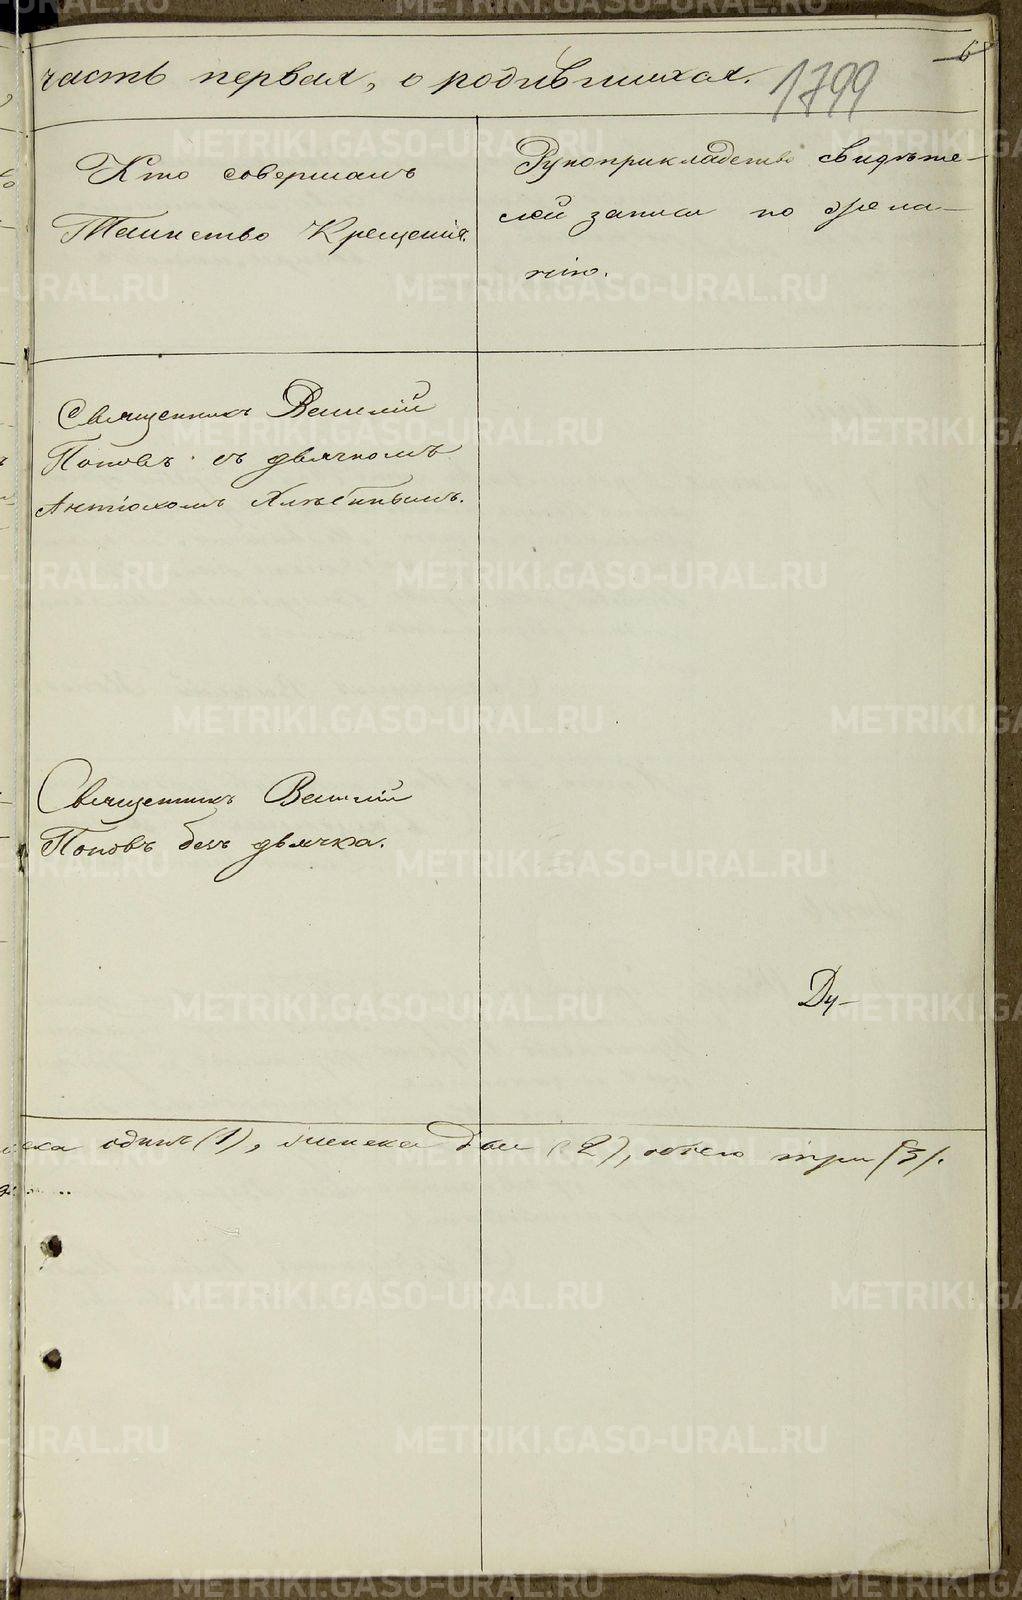 часть первая, о родившихся.
1799
Кто совершалъ
Таинство Крещенія.
Рукоприкладство свидѣте-
лей записи по жела-
нію.
Священникъ Василій
Поповъ съ дьячкомъ
Антіохомъ Хлѣбинымъ.
Священникъ Василій
Поповъ безъ дьячка.
Ду-
одинъ (1), женска два (2), обоего три (3).
METRIKI.GASO-URAL.RU